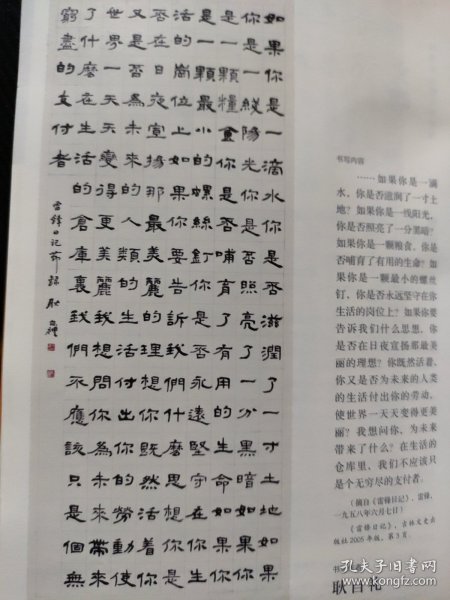 如果你是一滴水你是否滋潤了一寸土地如果
你是一綫陽光你是否照亮了一分黑暗如果你
是一顆糧食你是否哺育了有用的生命如果
是一顆最小的螺絲釘你是否永遠堅守在你生
活的崗位上如果你要告訴我們什麽思想你是
否在日夜宣揚那最美麗的理想你既然活着你
又是否為未來的人類的生活付出你的勞動使
世界一天天變得更美麗我想問你為未來帶來
了什麽在生活的倉庫裏我們不應該只是個無
窮盡的支付者
雷鋒日記節錄 耿自禮
书写内容
……如果你是一滴
水，你是否滋润了一寸土
地？如果你是一线阳光，
你是否照亮了一分黑暗？
如果你是一颗粮食，你是
否哺育了有用的生命？如
果你是一颗最小的螺丝
钉，你是否永远坚守在你
生活的岗位上？如果你要
告诉我们什么思想，你是
否在日夜宣扬那最美
丽的理想？你既然活着，
你又是否为未来的人类
的生活付出你的劳动，
使世界一天天变得更美
丽？我想问你，为未来
带来了什么？在生活的
仓库里，我们不应该只
是个无穷尽的支付者。
（摘自《雷锋日记》，雷锋，
一九五八年六月七日）
《雷锋日记》，吉林文史出
版社2005年版，第3页。
耿自礼
孔夫子旧书网